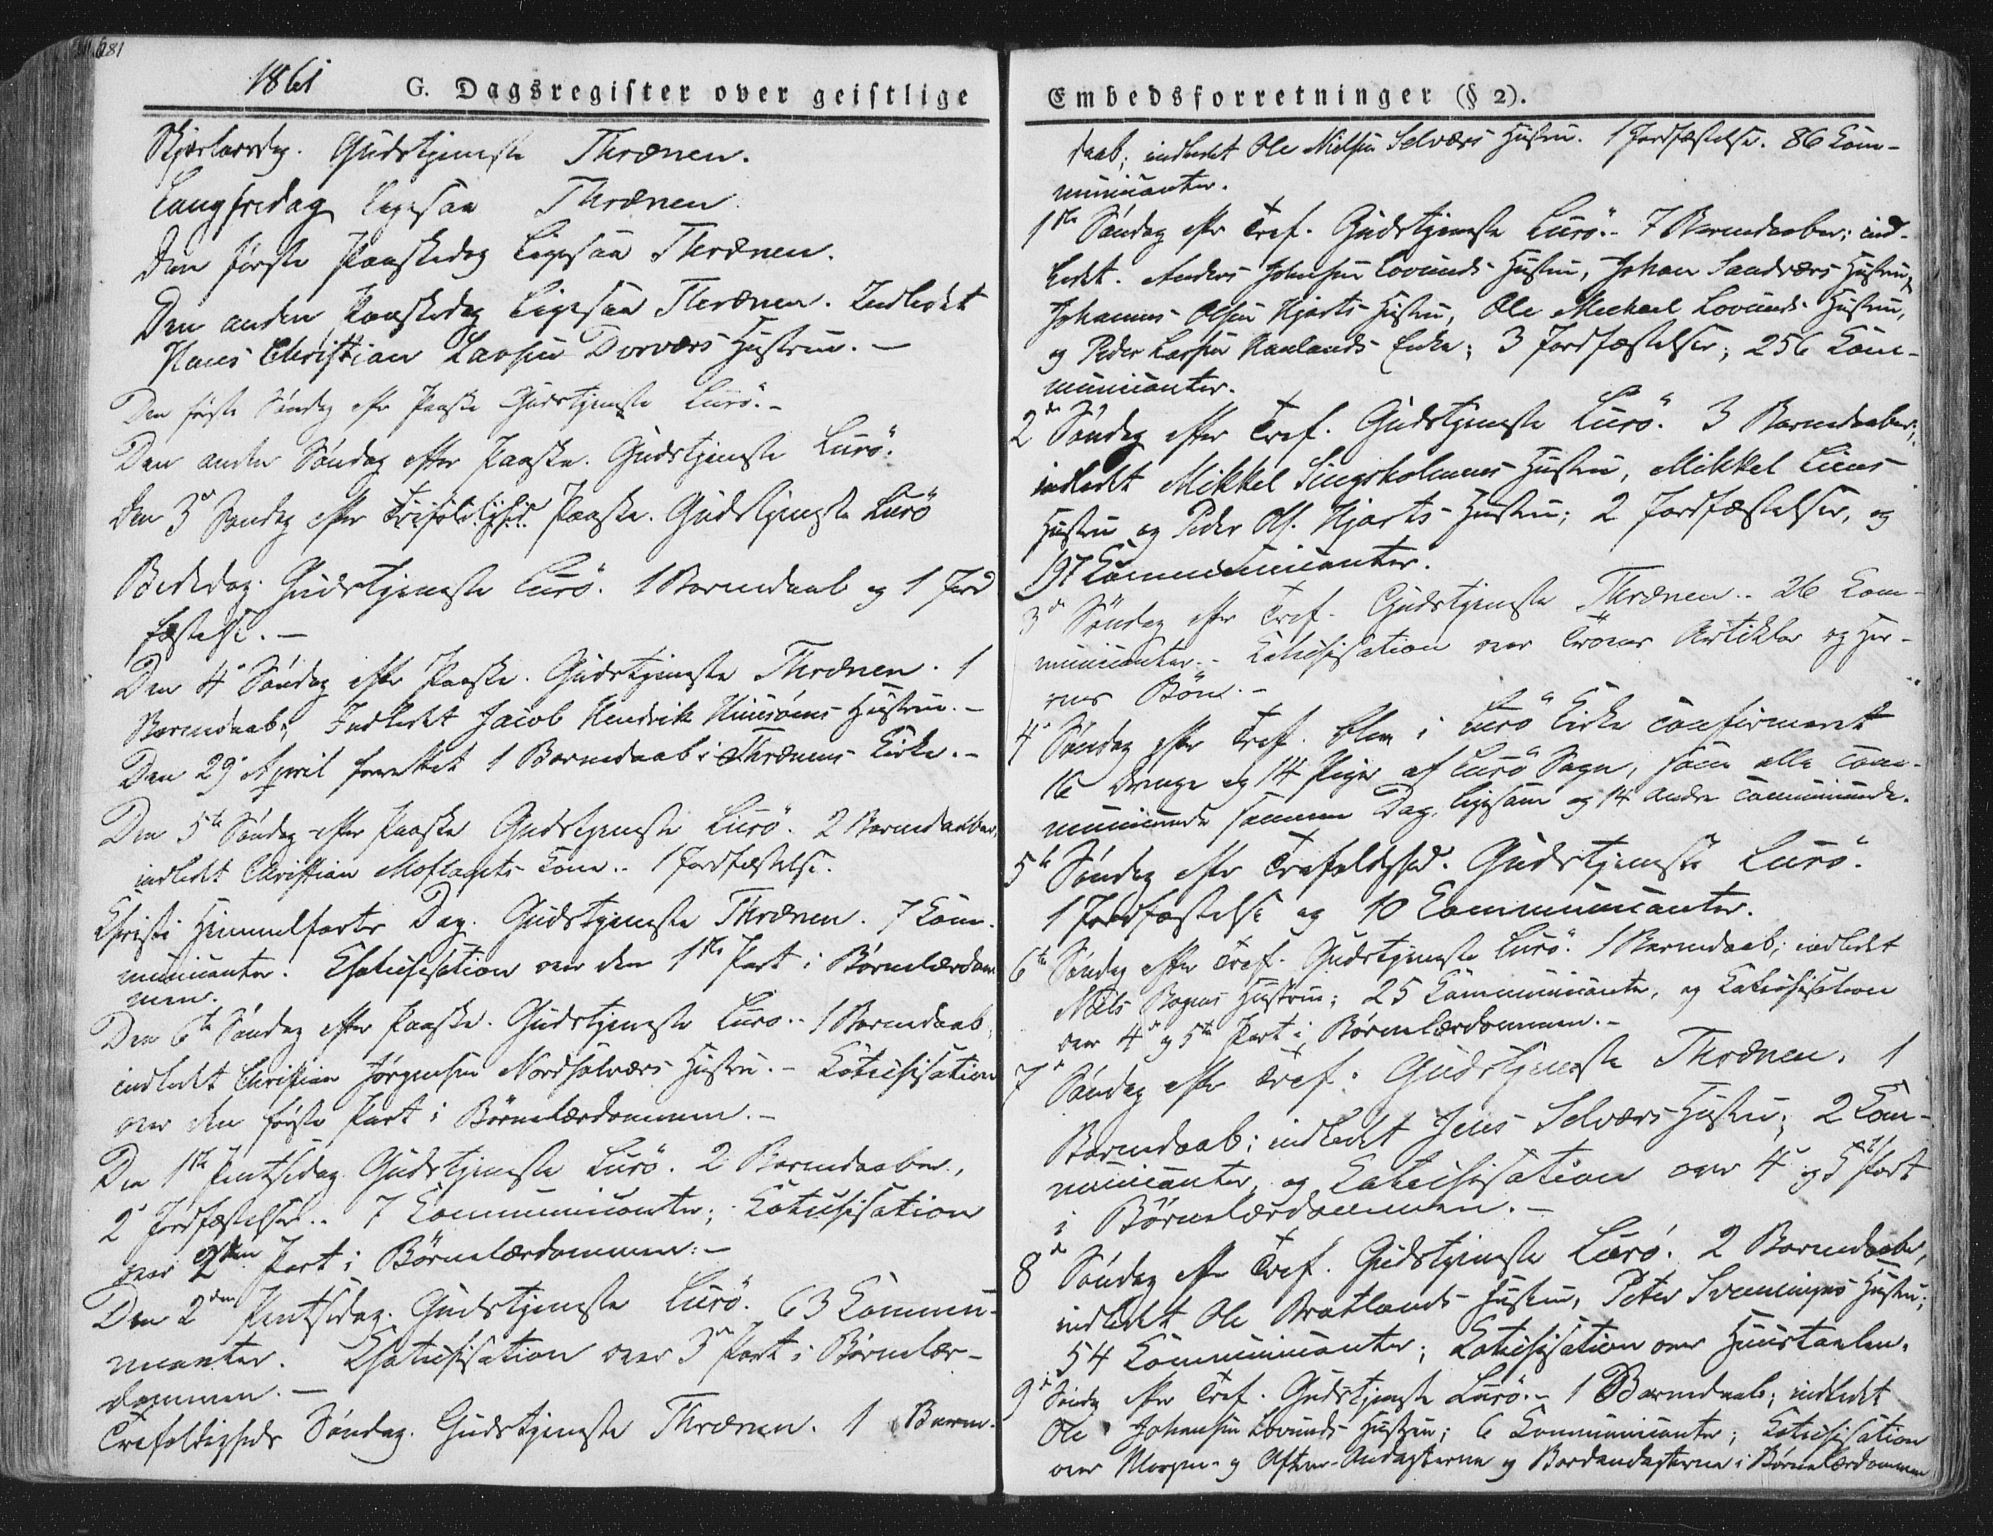 1861
G. Dagsregister over geistlige
Skjærtorsdag. Gudstjeneste Thrænen.
Langfredag ligesaa Thrænen.
Den første Paaskedag ligesaa Thrænen.
Den anden Paaskedag ligesaa Thrænen. Indledet
Hans Christian Larsen Dørværs Hustrue. —
Den første Søndag efter Paaske Gudstjeneste Lurö. –
Den anden Søndag efter Paaske. Gudstjeneste Lurö.
Den 3e Søndag efter Paaske. Gudstjeneste Lurö
Bededag. Gudstjeneste Lurö. 1 Barnedaab og 1 Jord
fæstelse. —
Den 4e Søndag efter Paaske. Gudstjeneste Thrænen. 1
Barnedaab; Indledet Jacob Hendrik Huusöens Hustrue. –
Den 29e April forrettet 1 Barnedaab i Thrænens Kirke. –
Den 5te Søndag efter Paaske Gudstjeneste Lurö. 2 Barnedaaber,
indledet Christian Moflagts Kone.. 1 Jordfæstelse.
Christi Himmelfarts Dag. Gudstjeneste Thrænen. 7 Com-
municanter. Chatechisation over den 1ste Part i Børnelærdom
men.
Den 6te Søndag efter Paaske. Gudstjeneste Luro.. 1 Barnedaab,
indledet Christian Jørgensen Nordsolværs Hustru. – Katechisation
over den første Part i Børnelærdommen. –
Den 1ste Pintsedag Gudstjeneste Lurö. 2 Barnedaaber,
2 Jordfæstelser.. 7 Communicanter; Katechisation
over 2den Part i Børnelærdommen: –
Den 2den Pintsedag. Gudstjeneste Lurö. 63 Commu-
nicanter. Chatechisation over 3e Part i Børnelær-
dommen. —
Trefoldigheds Søndag. Gudstjeneste Thrænen. 1 Barne-
Embedsforretninger (§ 2).
daab; indledet Ole Nielsen Selværs Hustru. 1 Jordfæstelse. 86 Com-
municanter.
1ste Søndag efter Tref. Gudstjeneste Lurö.. 7 Barnedaaber; ind-
ledet. Anders Johnsen Lovunds Hustru, Johan Sandværs Hustru,
Johannes Olsen Hjarts Hustru, Ole Mechael Lovunds Hustru,
og Peder Larsen Haalands Enke; 3 Jordfæstelser; 256 Com-
municanter.
2de Søndag efter Tref. Gudstjeneste Lurö. 3 Barnedaaber;
indledet Mikkel Lingsholmens Hustru, Mikkel Liens
Hustru og Peder Ols. Hjarts Hustru; 2 Jordfæstelser, og
197 Communicanter.
3de Søndag efter Tref. Gudstjeneste Thrænen.. 26 Com-
municanter.. Catechisation over Troens Artikler og Her-
rens Bön. –
4e Søndag efter Tref. blev i Lurö Kirke confirmeret
16 Drenge og 14 Piger af Lurö Sogn, som alle com-
municerede samme Dag, ligesom og 14 andre communicerede.
5te Søndag efter Trefoldighed. Gudstjeneste Lurö.
1 Jordfæstelse og 10 Communicanter.
6te Søndag efter Tref. Gudstjeneste Lurö. 1 Barnedaab; indledet
Niels Hustrue; 25 Communicanter, og Katechisation
over 4e og 5te Part i Børnelærdommen. –
7e Søndag efter Tref. Gudstjeneste Thrænen. 1
Barnedaab; indledet Jens Selværs Hustru; 2 Com-
municanter, og Katechisation over 4e og 5te Part
i Børnelærdommen. –
8de Søndag efter Tref. Gudstjeneste Lurö. 2 Barnedaaber,
indledet Ole Bratlands Hustru, Peter Svenningens Hustru;
54 Communicanter; Katechisation over Huustavlen.
9de Søndag efter Tref. Gudstjeneste Lurö. – 1 Barnedaab; indledet
Ole Johansen Lovunds Hustru; 6 Communicanter; Katechisation
over Morgen- og Aften-Andagterne og Bordandagterne i Børnelærdommen